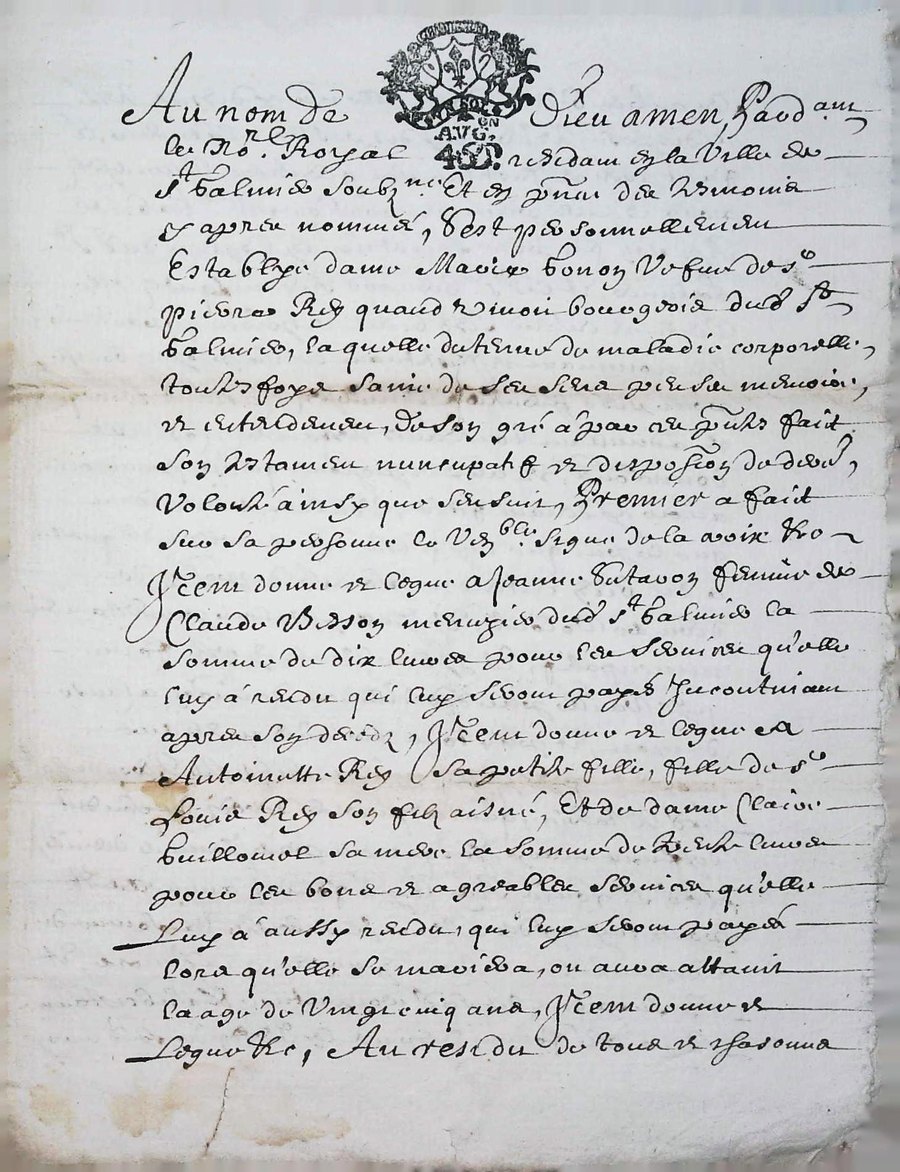 UN SOL
EN
AVG.
Au nom de Dieu amen, Pard.am̃
le No.re Royal residam en la Ville de
s.t Galmier soubz.ne Et en pñce des tesmoins
cy apres nommés, S'est personnellemen
Establye dame Marie vefve de s.r
pierre Rey quand vivoit bourgeois dud. s.t
Galmier, la quelle detenue de maladie corporelle,
toutesfoys saine de ses sens pensee memoire,
et entendemen, de son gré á par ces pñtes fait
son testamen nuncupatif et disposi͠on de dere͠
Volonté ainsy que sensuit, Premier a fait
sur sa personne le Ven.ble signe de la croix &c
Jtem donne et legue a Jeanne femme de
Claude Besson menuzier dud. s.t Galmier la
somme de dix livres pour les services qu'elle
luy á rendu qui luy seront payés Jncontinam
apres son decedz, Jtem donne et legue a
Antoinette Rey sa petite fille, fille de s.r
Louis Rey son filz aisné, Et de dame Claire
Guillomel sa mere la somme de trente livres
pour les bons et agreables services qu'elle
Luy á aussy rendu, qui luy seront payés
lors qu'elle se mariera, ou aura attaint
la age de Vingt cinq ans, Jtem donne et
Legue &c, Au residu de tous et chascuns